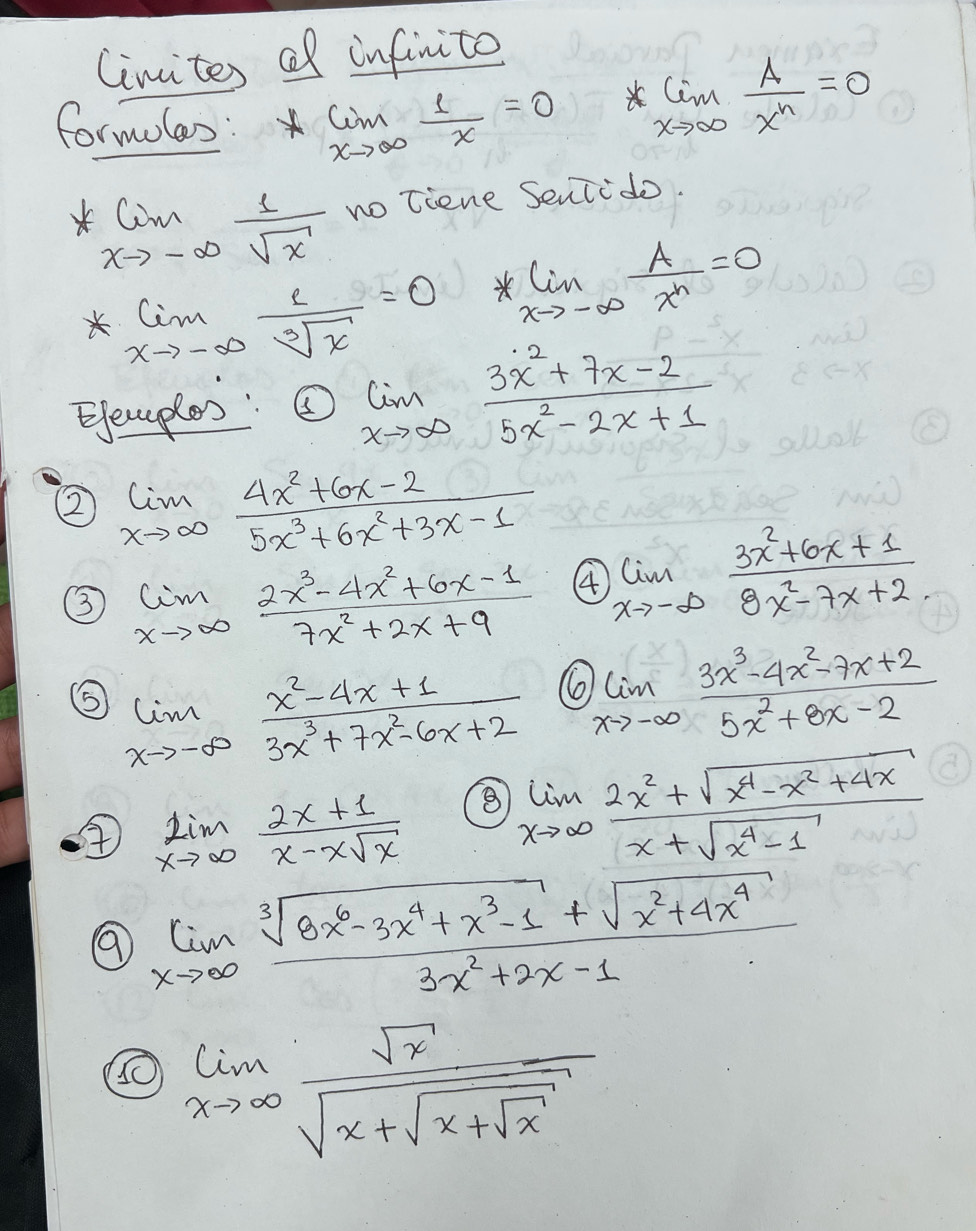 Límites al infinito
Formulas: * Lim x→∞ 1/x = 0 * Lim x→∞ A/xⁿ = 0
* Lim x→-∞ 1/√x no Tiene Sentido.
* Lim x→-∞ 1/∛x = 0 * Lim x→-∞ A/xⁿ = 0
Ejemplos: ① Lim x→∞ (3x²+7x-2)/(5x²-2x+1)
② Lim x→∞ (4x²+6x-2)/(5x³+6x²+3x-1)
③ Lim x→∞ (2x³-4x²+6x-1)/(7x²+2x+9) ④ Lim x→-∞ (3x²+6x+1)/(8x²-7x+2).
⑤ Lim x→-∞ (x²-4x+1)/(3x³+7x²-6x+2) ⑥ Lim x→-∞ (3x³-4x²-7x+2)/(5x²+8x-2)
⑦ Lim x→∞ (2x+1)/(x-x√x) ⑧ Lim x→∞ (2x²+√(x⁴-x²+4x))/(x+√(x⁴-1))
⑨ Lim x→∞ (∛(8x⁶-3x⁴+x³-1)+√(x²+4x⁴))/(3x²+2x-1)
⑩ Lim x→∞ √x/√(x+√(x+√x))